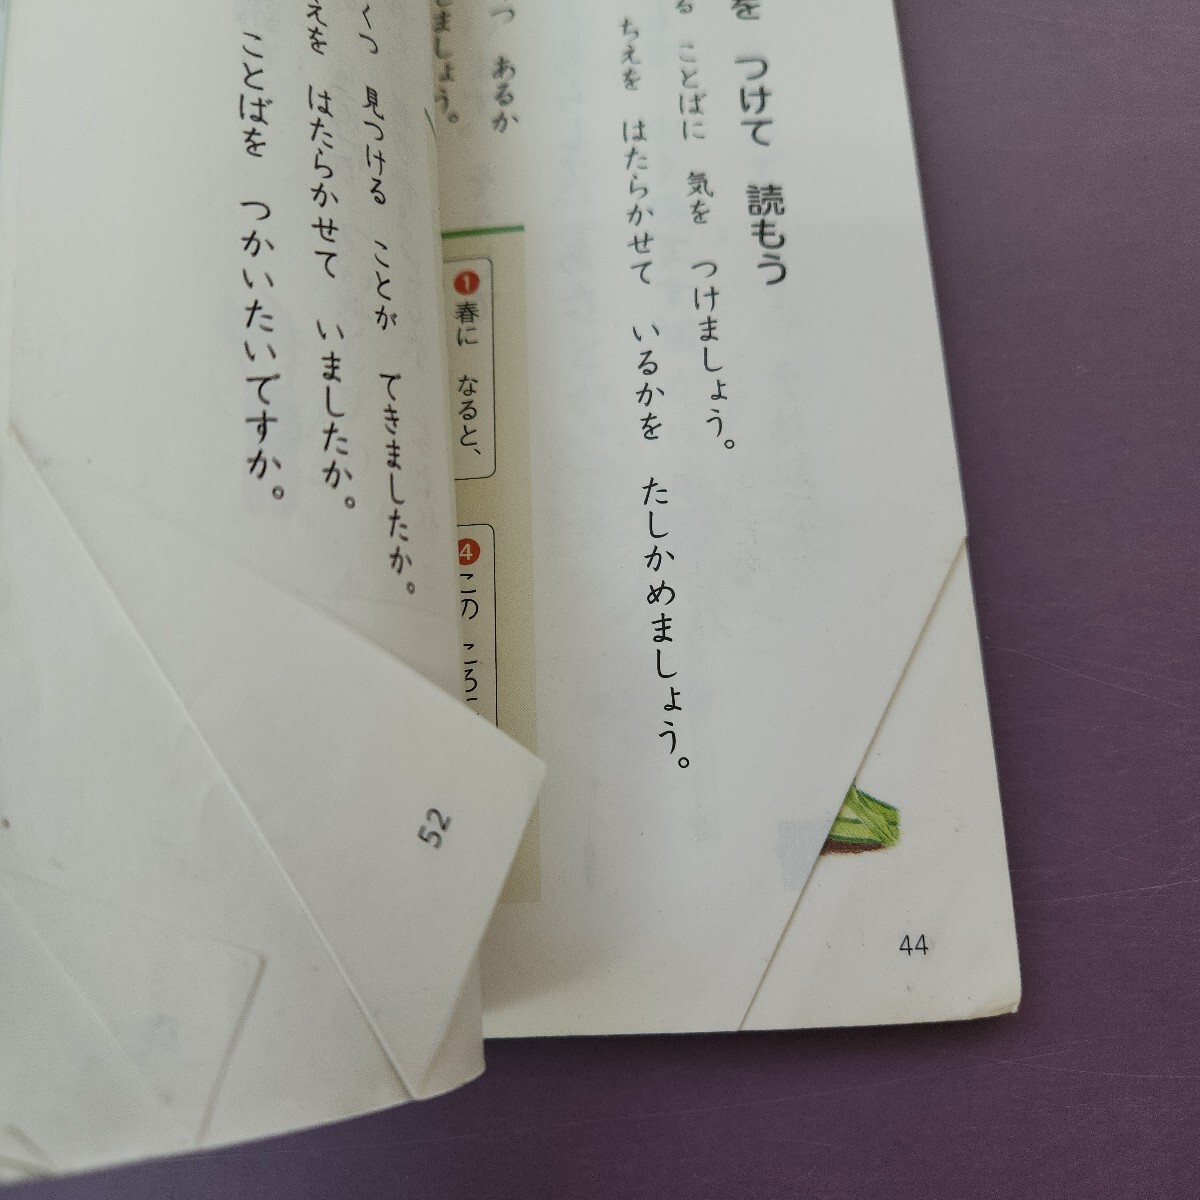 を つけて 読もう
る ことばに 気を つけましょう。
ちえを はたらかせて いるかを たしかめましょう。
つ あるか
しましょう。
❶春に なると、
❹この ころ
44
くつ 見つける ことが できましたか。
えを はたらかせて いましたか。
ことばを つかいたいですか。
52